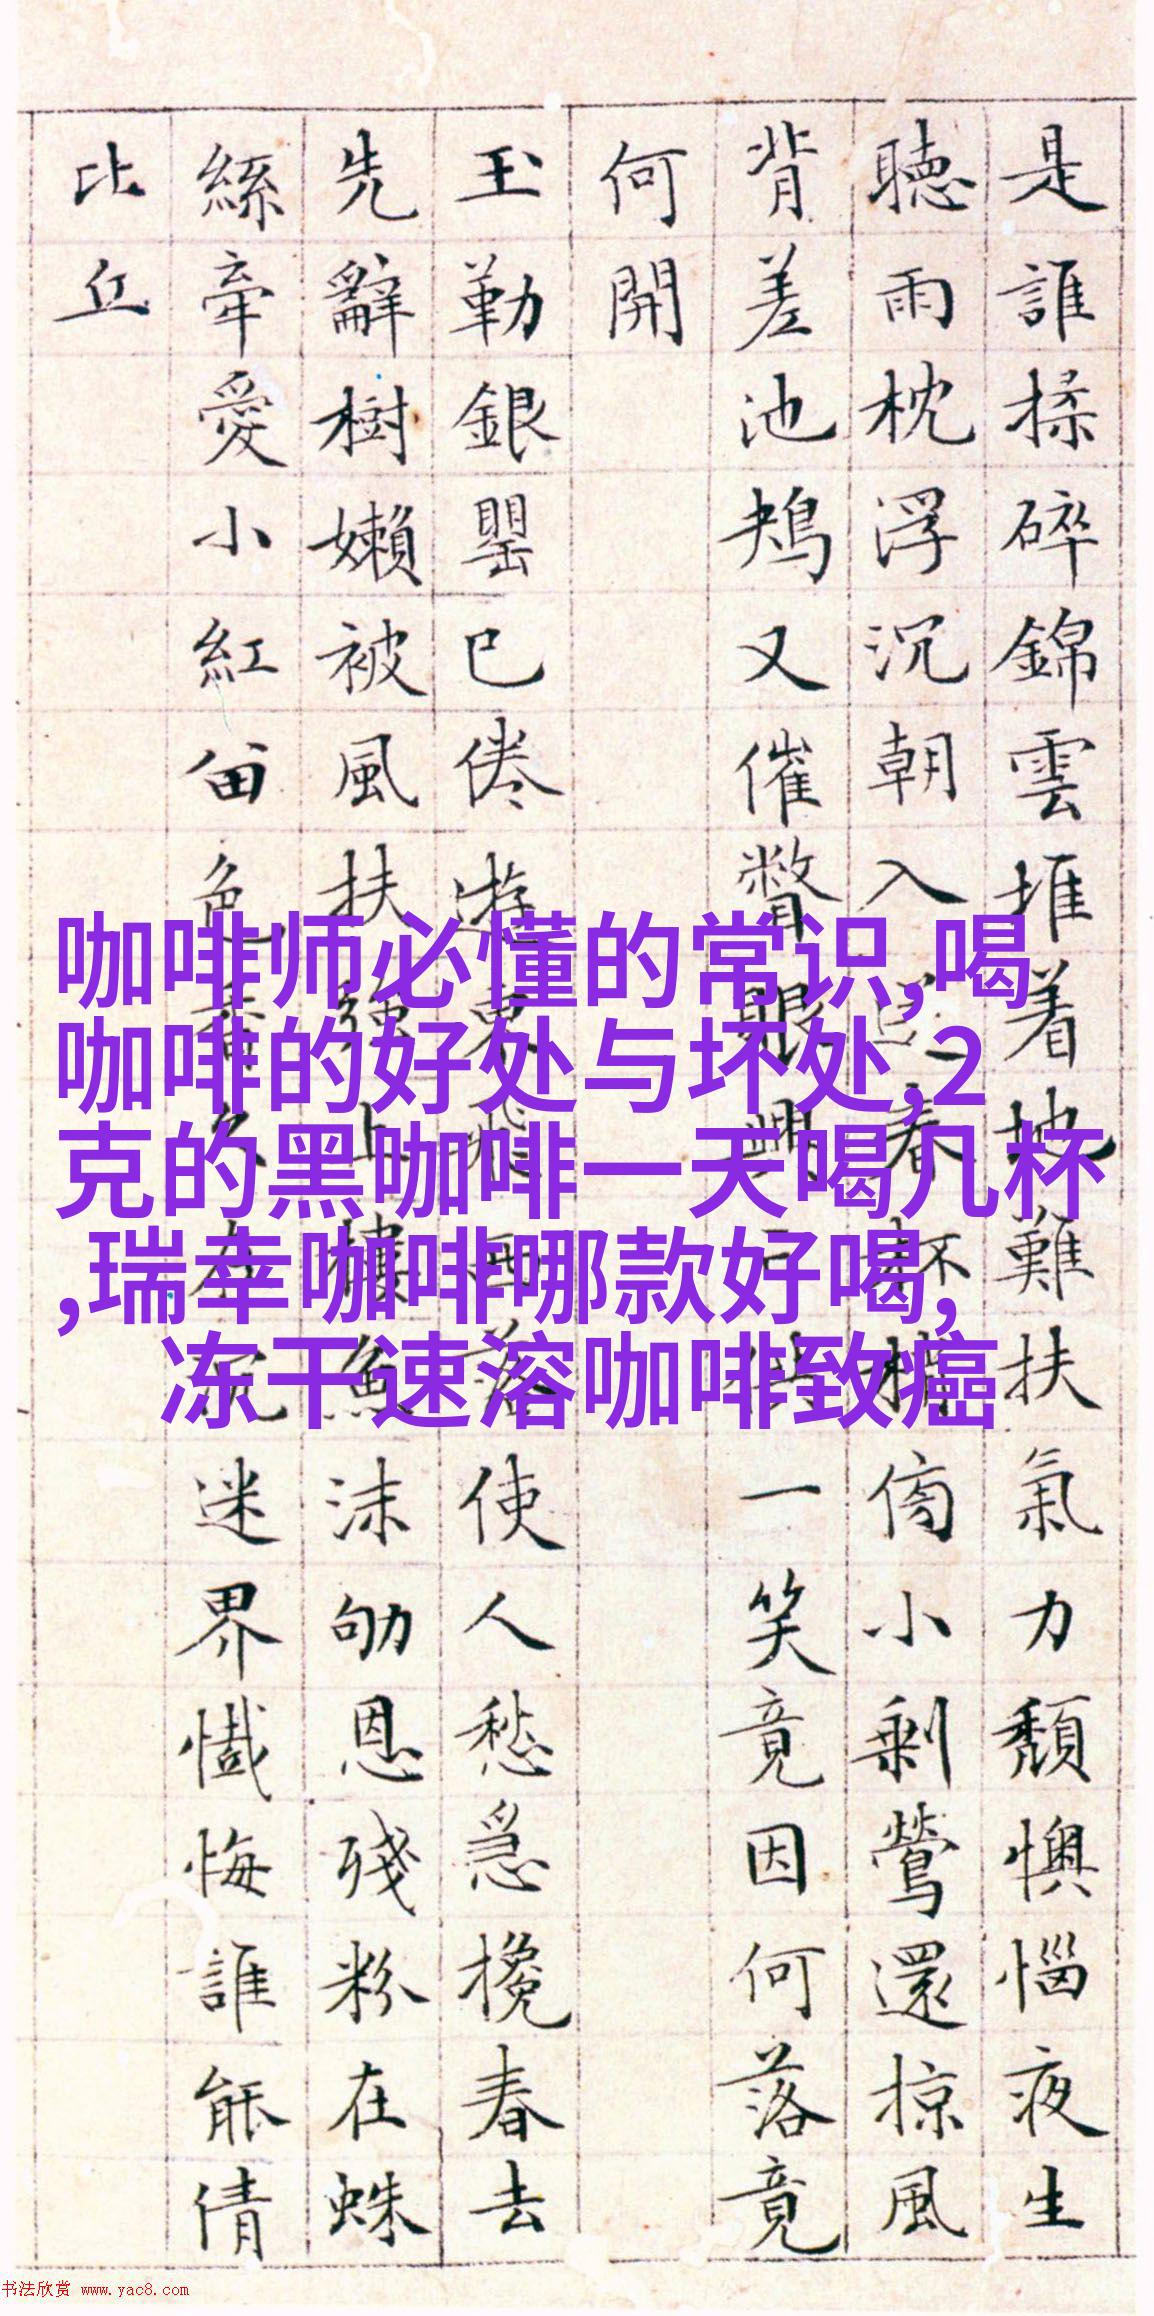 是誰揉碎錦雲堆着地難扶氣力頹懊惱夜生
聴雨枕浮沉朝入春杯傍小剩鶯還掠風
背差池鴂又催瞥眼興亡供一笑竟因何落竟
何開
玉勒銀罌已倦遊東飛西落使人愁急攙春去
先辭樹嬾被風扶強上樓魚沫劬恩殘粉在蛛
絲牽愛小紅畄色香久在沉迷界懺悔誰能倩
比丘
咖啡师必懂的常识,喝
咖啡的好处与坏处,2
克的黑咖啡一天喝几杯
,瑞幸咖啡哪款好喝,
冻干速溶咖啡致癌
书法欣赏 www.yac8.com